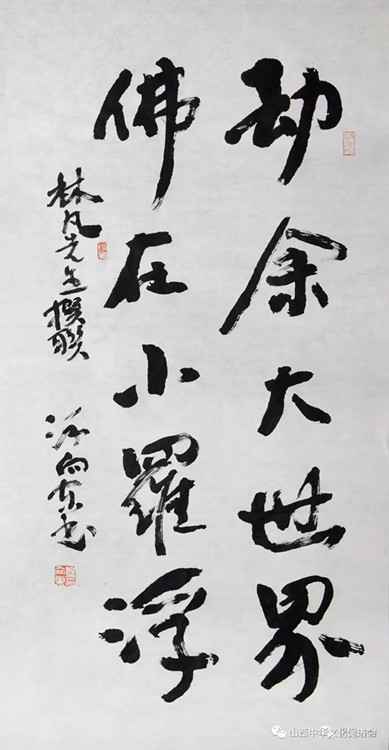 劫余大世界
佛在小羅浮
林凡先生撰聯
向东书
山西中华文化促进会